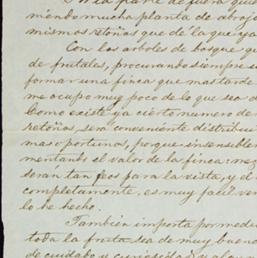 En la parte de fuera que
niendo mucha planta de abrojo
mismos retoños que de la que ya
Con los arboles de bosque
de frutales, procurando siempre
formar una finca que mas tarde
me ocupo muy poco de lo que sea
Como existe ya cierto numero de
retoños, será conveniente distribui
mas oportunos, porque insensiblem
mentando el valor de la finca:
serán tan feos para la vista, y el
completamente, es muy facil ven
lo he hecho.
Tambien importa por medi
toda la fruta sea de muy buen
de cuidado y curiosidad y